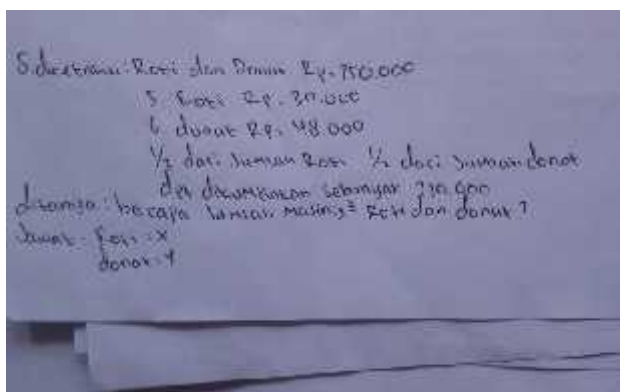 5. diketahui: Roti dan Donut Rp. 750.000
5 Roti Rp. 30.000
6 donat Rp. 48.000
1/2 dari Jumlah Roti 1/2 dari Jumlah donat
dan sebanyak
ditanya: berapa Jumlah masing2 Roti dan donut?
Jawab: Roti = x
donat = y